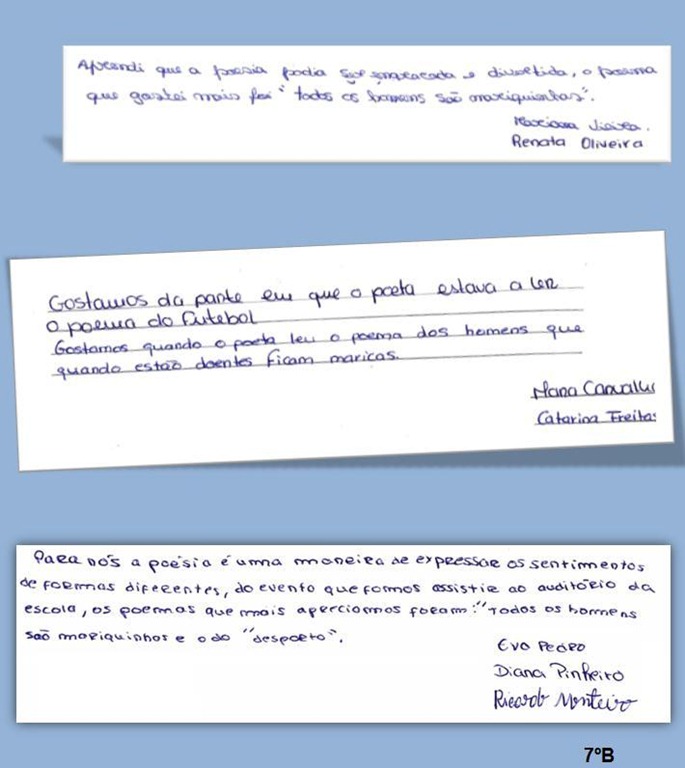 Aprendi que a poesia podia ser engraçada e divertida, o poema
que gostei mais foi "todos os homens são mariquinhas".
Mariana Vieira.
Renata Oliveira
Gostamos da parte em que o poeta estava a ler
o poema do futebol
Gostamos quando o poeta leu o poema dos homens que
quando estão doentes ficam maricas.
Carvalho
Catarina Freitas
Para nós a poesia é uma maneira de expressar os sentimentos
de formas diferentes, do evento que fomos assistir ao auditório da
escola, os poemas que mais aperciamos foram: "Todos os homens
são mariquinhas e o do "desporto".
Eva Pedro
Diana Pinheiro
Ricardo Monteiro
7ºB